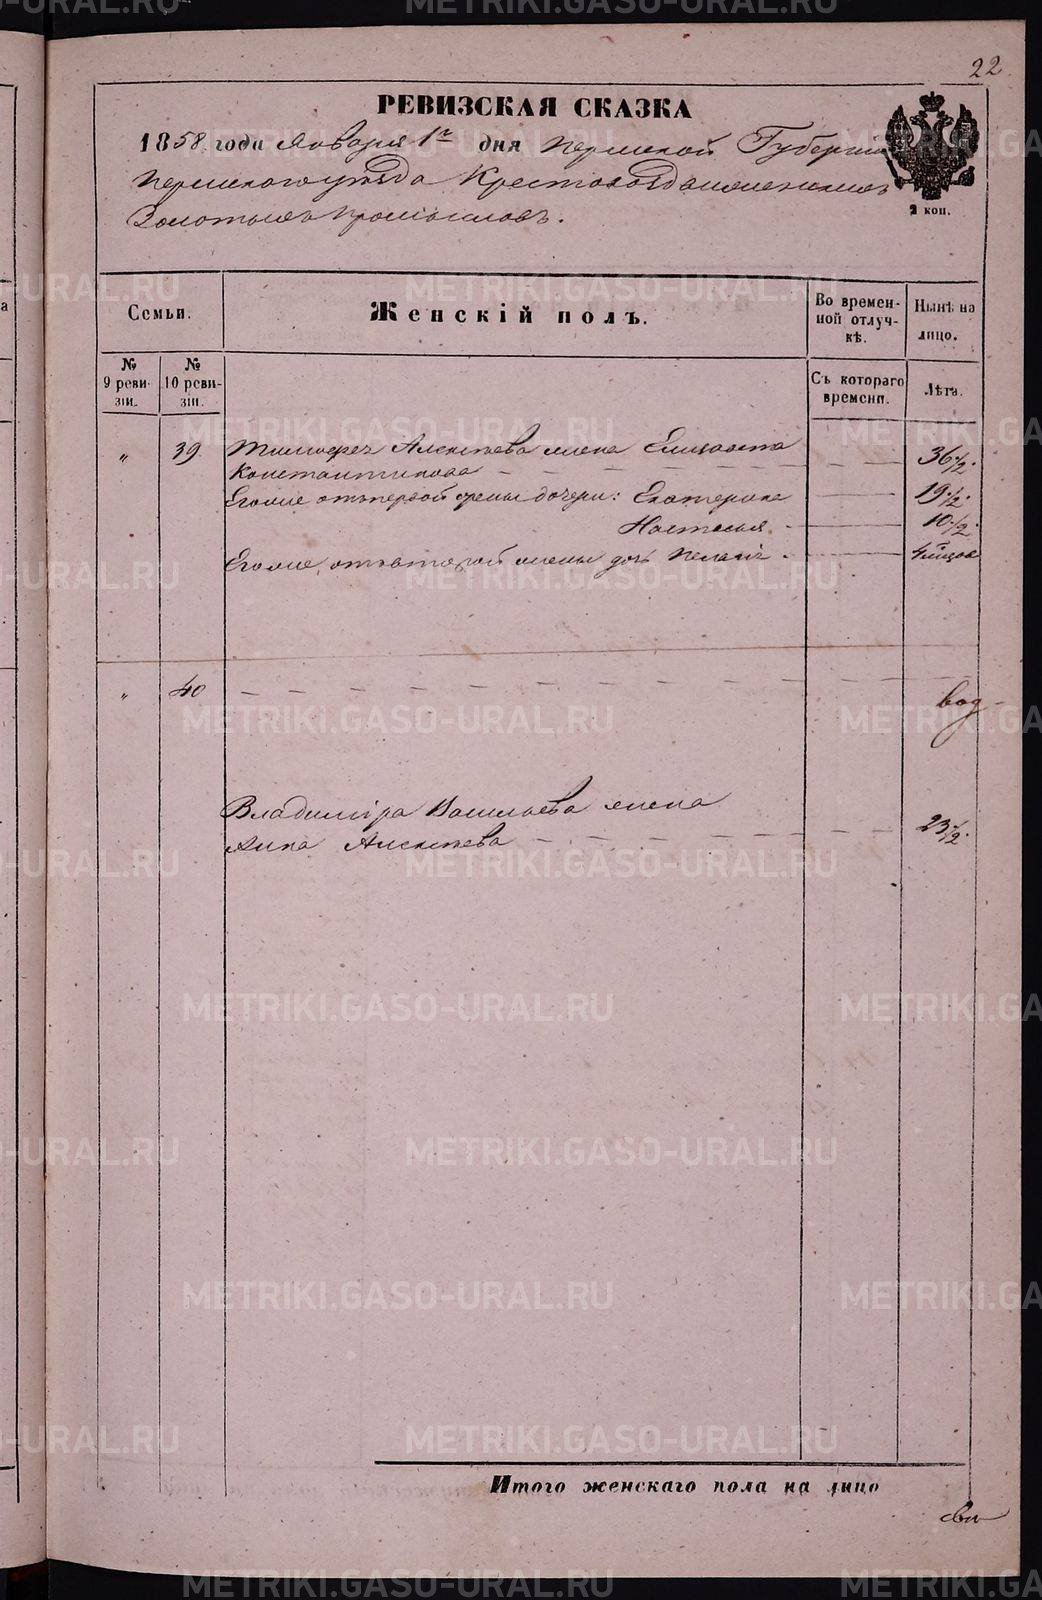 22.
РЕВИЗСКАЯ СКАЗКА
1858 года Января 1го дня Пермской Губернiи
Пермского уезда Крестовоздвиженских
Золотых Промыслов.
2 коп.
Семьи.
Женскiй полъ.
Во времен-
ной отлуч-
кѣ.
Нынѣ на
лицо.
№
9 реви-
зiи.
№
10 реви-
зiи.
Съ котораго
времени.
Лѣта.
" 39 Алексѣева жена Елизавета
Константинова 36 1/2.
Его же отъ первой жены дочери: Екатерина 19 1/2.
Настасья 10 1/2.
Его же, отъ второй жены дочь Пелагiя
" 40
Владимiра Васильева жена
Анна Алексѣева 23 1/2.
Итого женскаго пола на лицо
METRIKI.GASO-URAL.RU